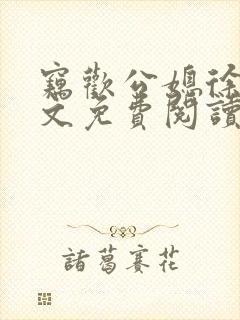 竊歡公媳徐
文免費閱讀
諸葛賽花